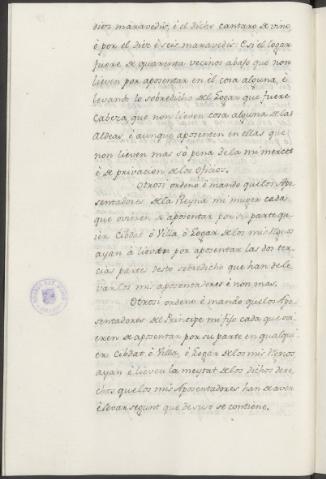 dies maravedis, é el dicho cantaro de vino,
é por el diez é seis maravedis. E si el Logar
fuere de quarenta vecinos abajo que non
lieven por aposentar en él cosa alguna, é
levando lo sobredicho del Logar que fuere
Cabeza, que non lieven cosa alguna de las
Aldeas, é aunque aposenten en ellas que
non lieven mas só pena de la mi merced
é de privacion de los Oficios.
Otrosi ordeno é mando que los Apo-
sentadores de la Reyna mi muger cada
que ovieren de aposentar por su parte en
Cibdat ó Villa ó Logar de los mis Regnos
ayan á llevar por aposentar las dos ter-
cias partes desto sobredicho que han de le-
var los mis aposentadores é non mas.
Otrosi ordeno é mando que los Apo-
sentadores del Principe mi fijo cada que ovi-
eren de aposentar por su parte en qualqui-
er Cibdat ó Villa, ó Logar de los mis Regnos
ayan é lieven la meytat de los dichos dere-
chos que los mis Aposentadores han de aver
é levar segunt que desuso se contiene.